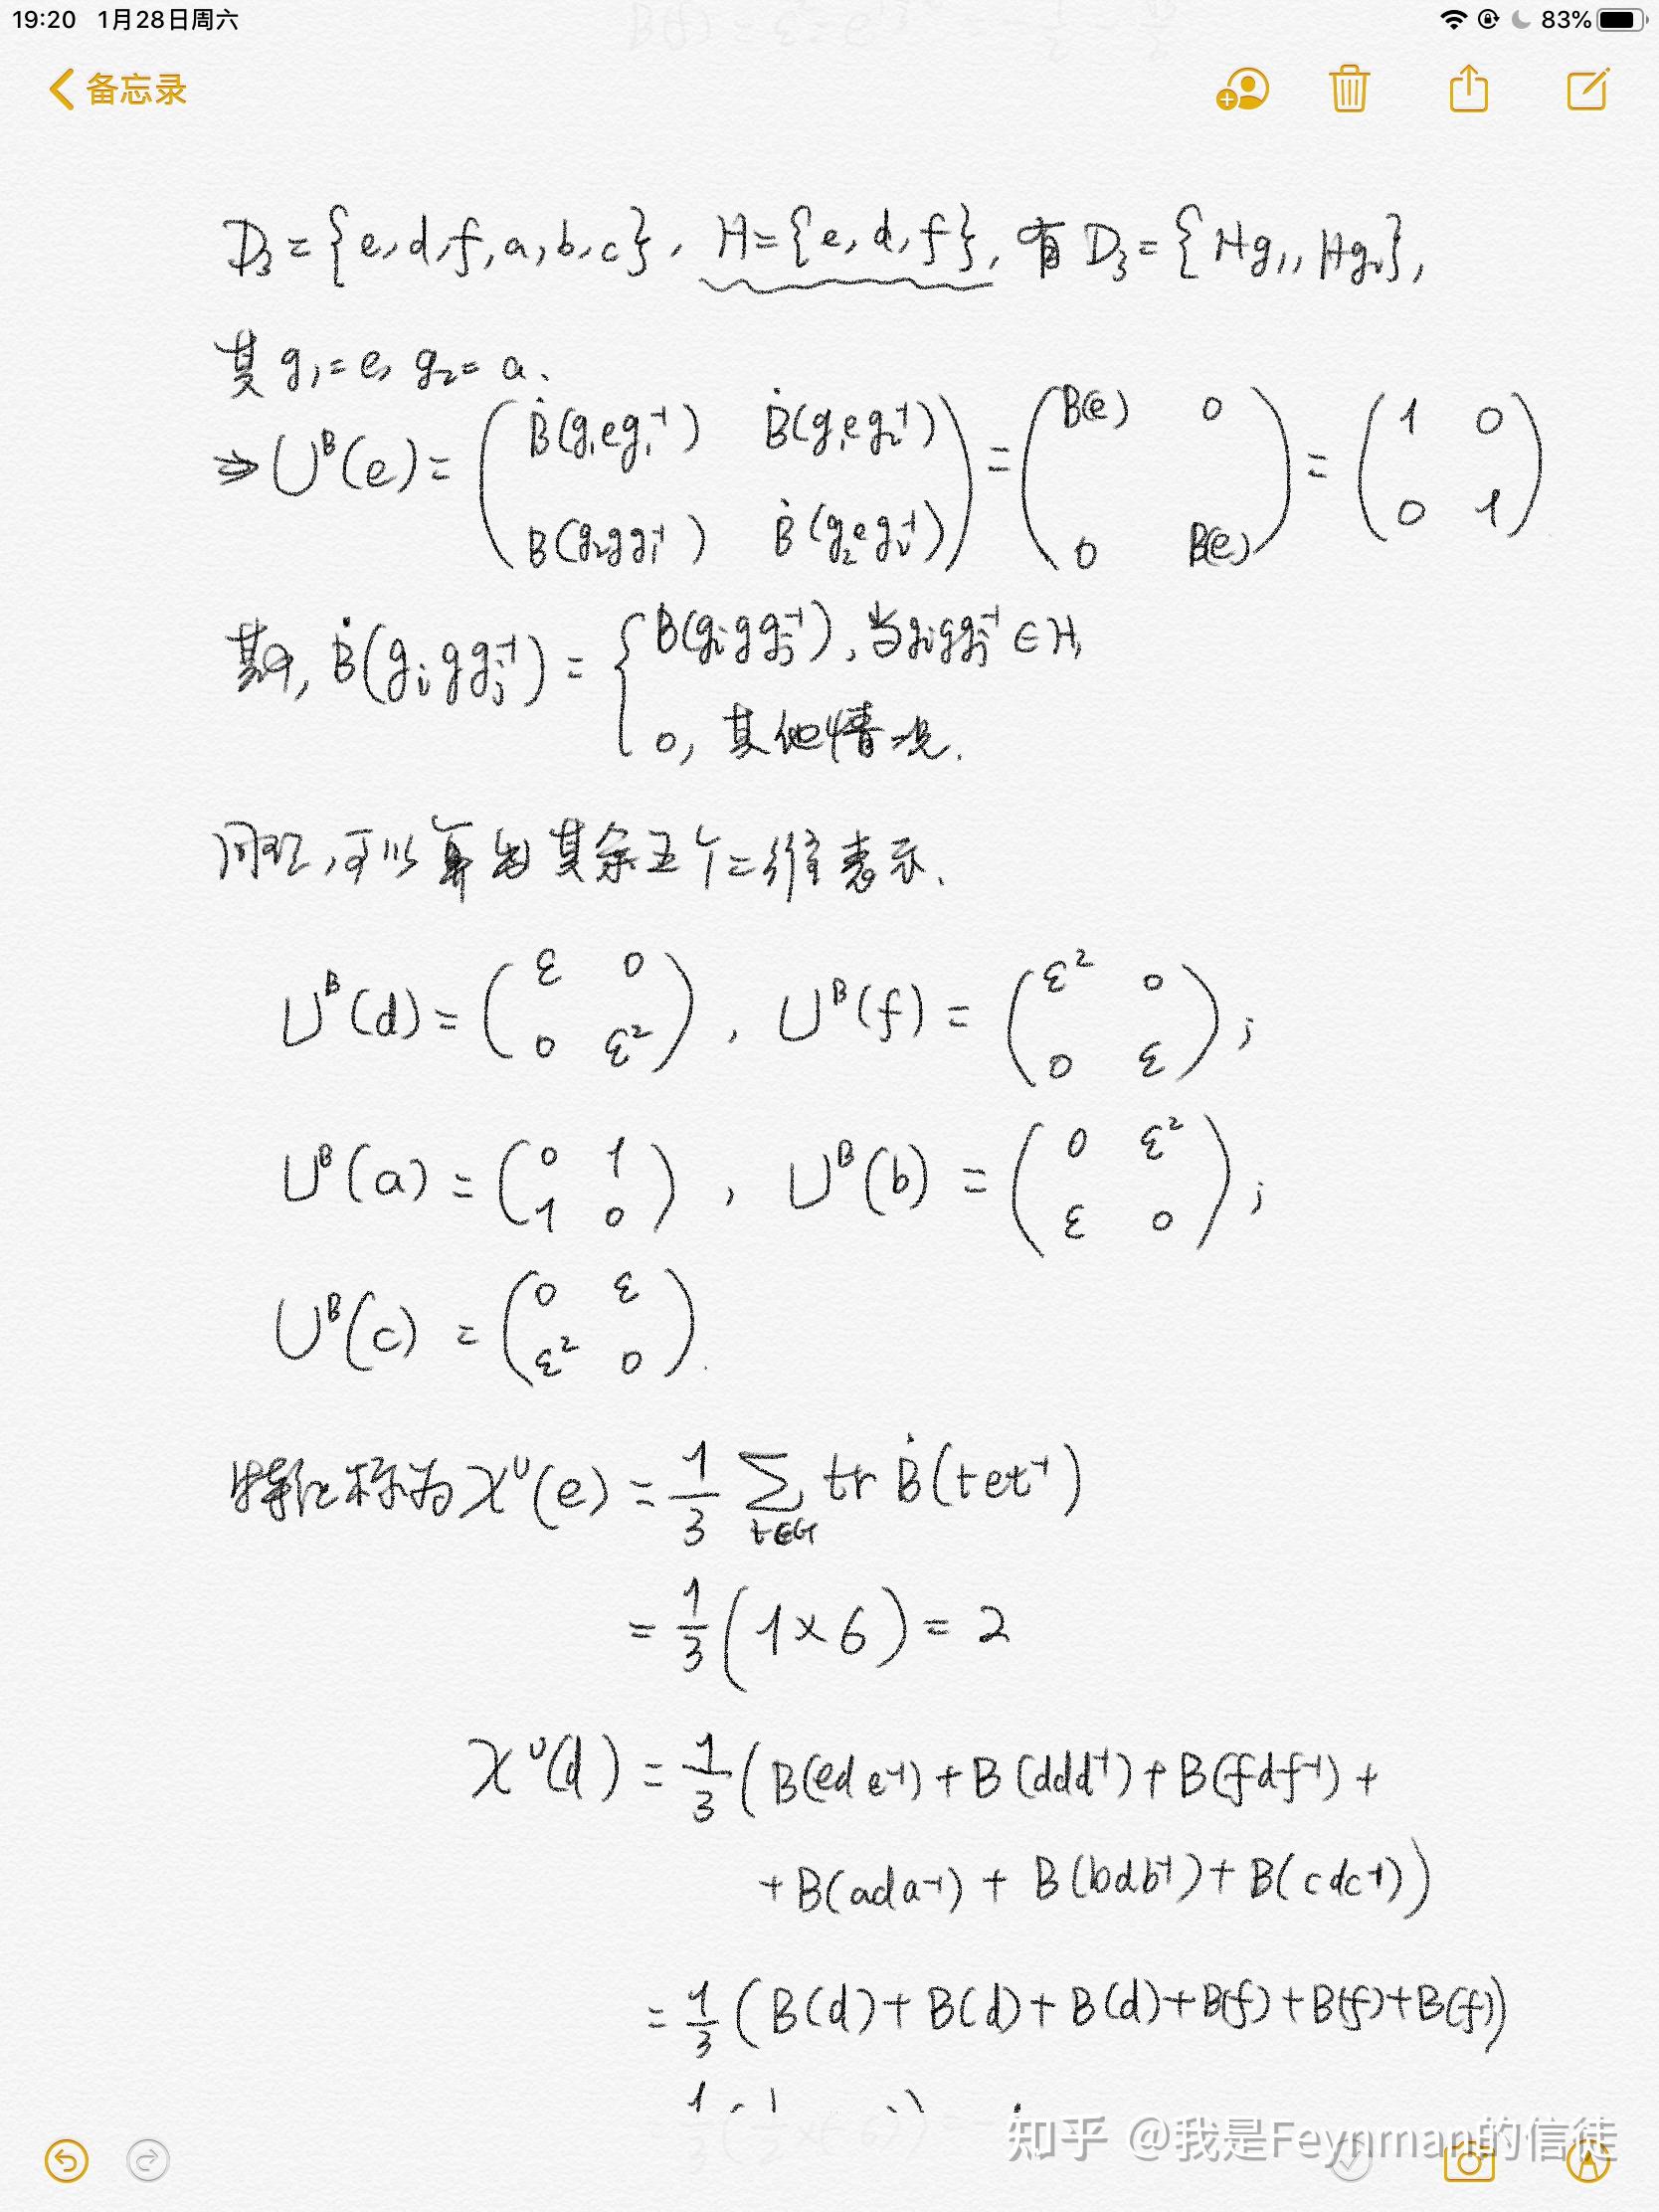 19:20 1月28日周六 83%
备忘录
D₃={e,d,f,a,b,c}, H={e,d,f}, 有D₃={Hg₁,Hg₂},
其 g₁=e, g₂=a.
⇒ Uᴮ(e)= ( Ḃ(g₁eg₁⁻¹) Ḃ(g₁eg₂⁻¹) ; B(g₂gg₁⁻¹) Ḃ(g₂eg₂⁻¹) ) = ( B(e) 0 ; 0 B(e) ) = ( 1 0 ; 0 1 )
其中, Ḃ(gᵢggⱼ⁻¹) = { B(gᵢggⱼ⁻¹), 当gᵢggⱼ⁻¹∈H,
0, 其他情况.
同理,可以算出其余五个二维表示.
Uᴮ(d)= ( ε 0 ; 0 ε² ), Uᴮ(f)= ( ε² 0 ; 0 ε );
Uᴮ(a)= ( 0 1 ; 1 0 ), Uᴮ(b)= ( 0 ε² ; ε 0 );
Uᴮ(c)= ( 0 ε ; ε² 0 ).
特征标为 χᵁ(e)= 1/3 ∑ t∈G tr Ḃ(tet⁻¹)
= 1/3 (1×6) = 2
χᵁ(d) = 1/3 ( B(ede⁻¹) + B(ddd⁻¹) + B(fdf⁻¹) +
+ B(ada⁻¹) + B(bdb⁻¹) + B(cdc⁻¹) )
= 1/3 ( B(d)+B(d)+B(d)+B(f)+B(f)+B(f) )
知乎 @我是Feynman的信徒